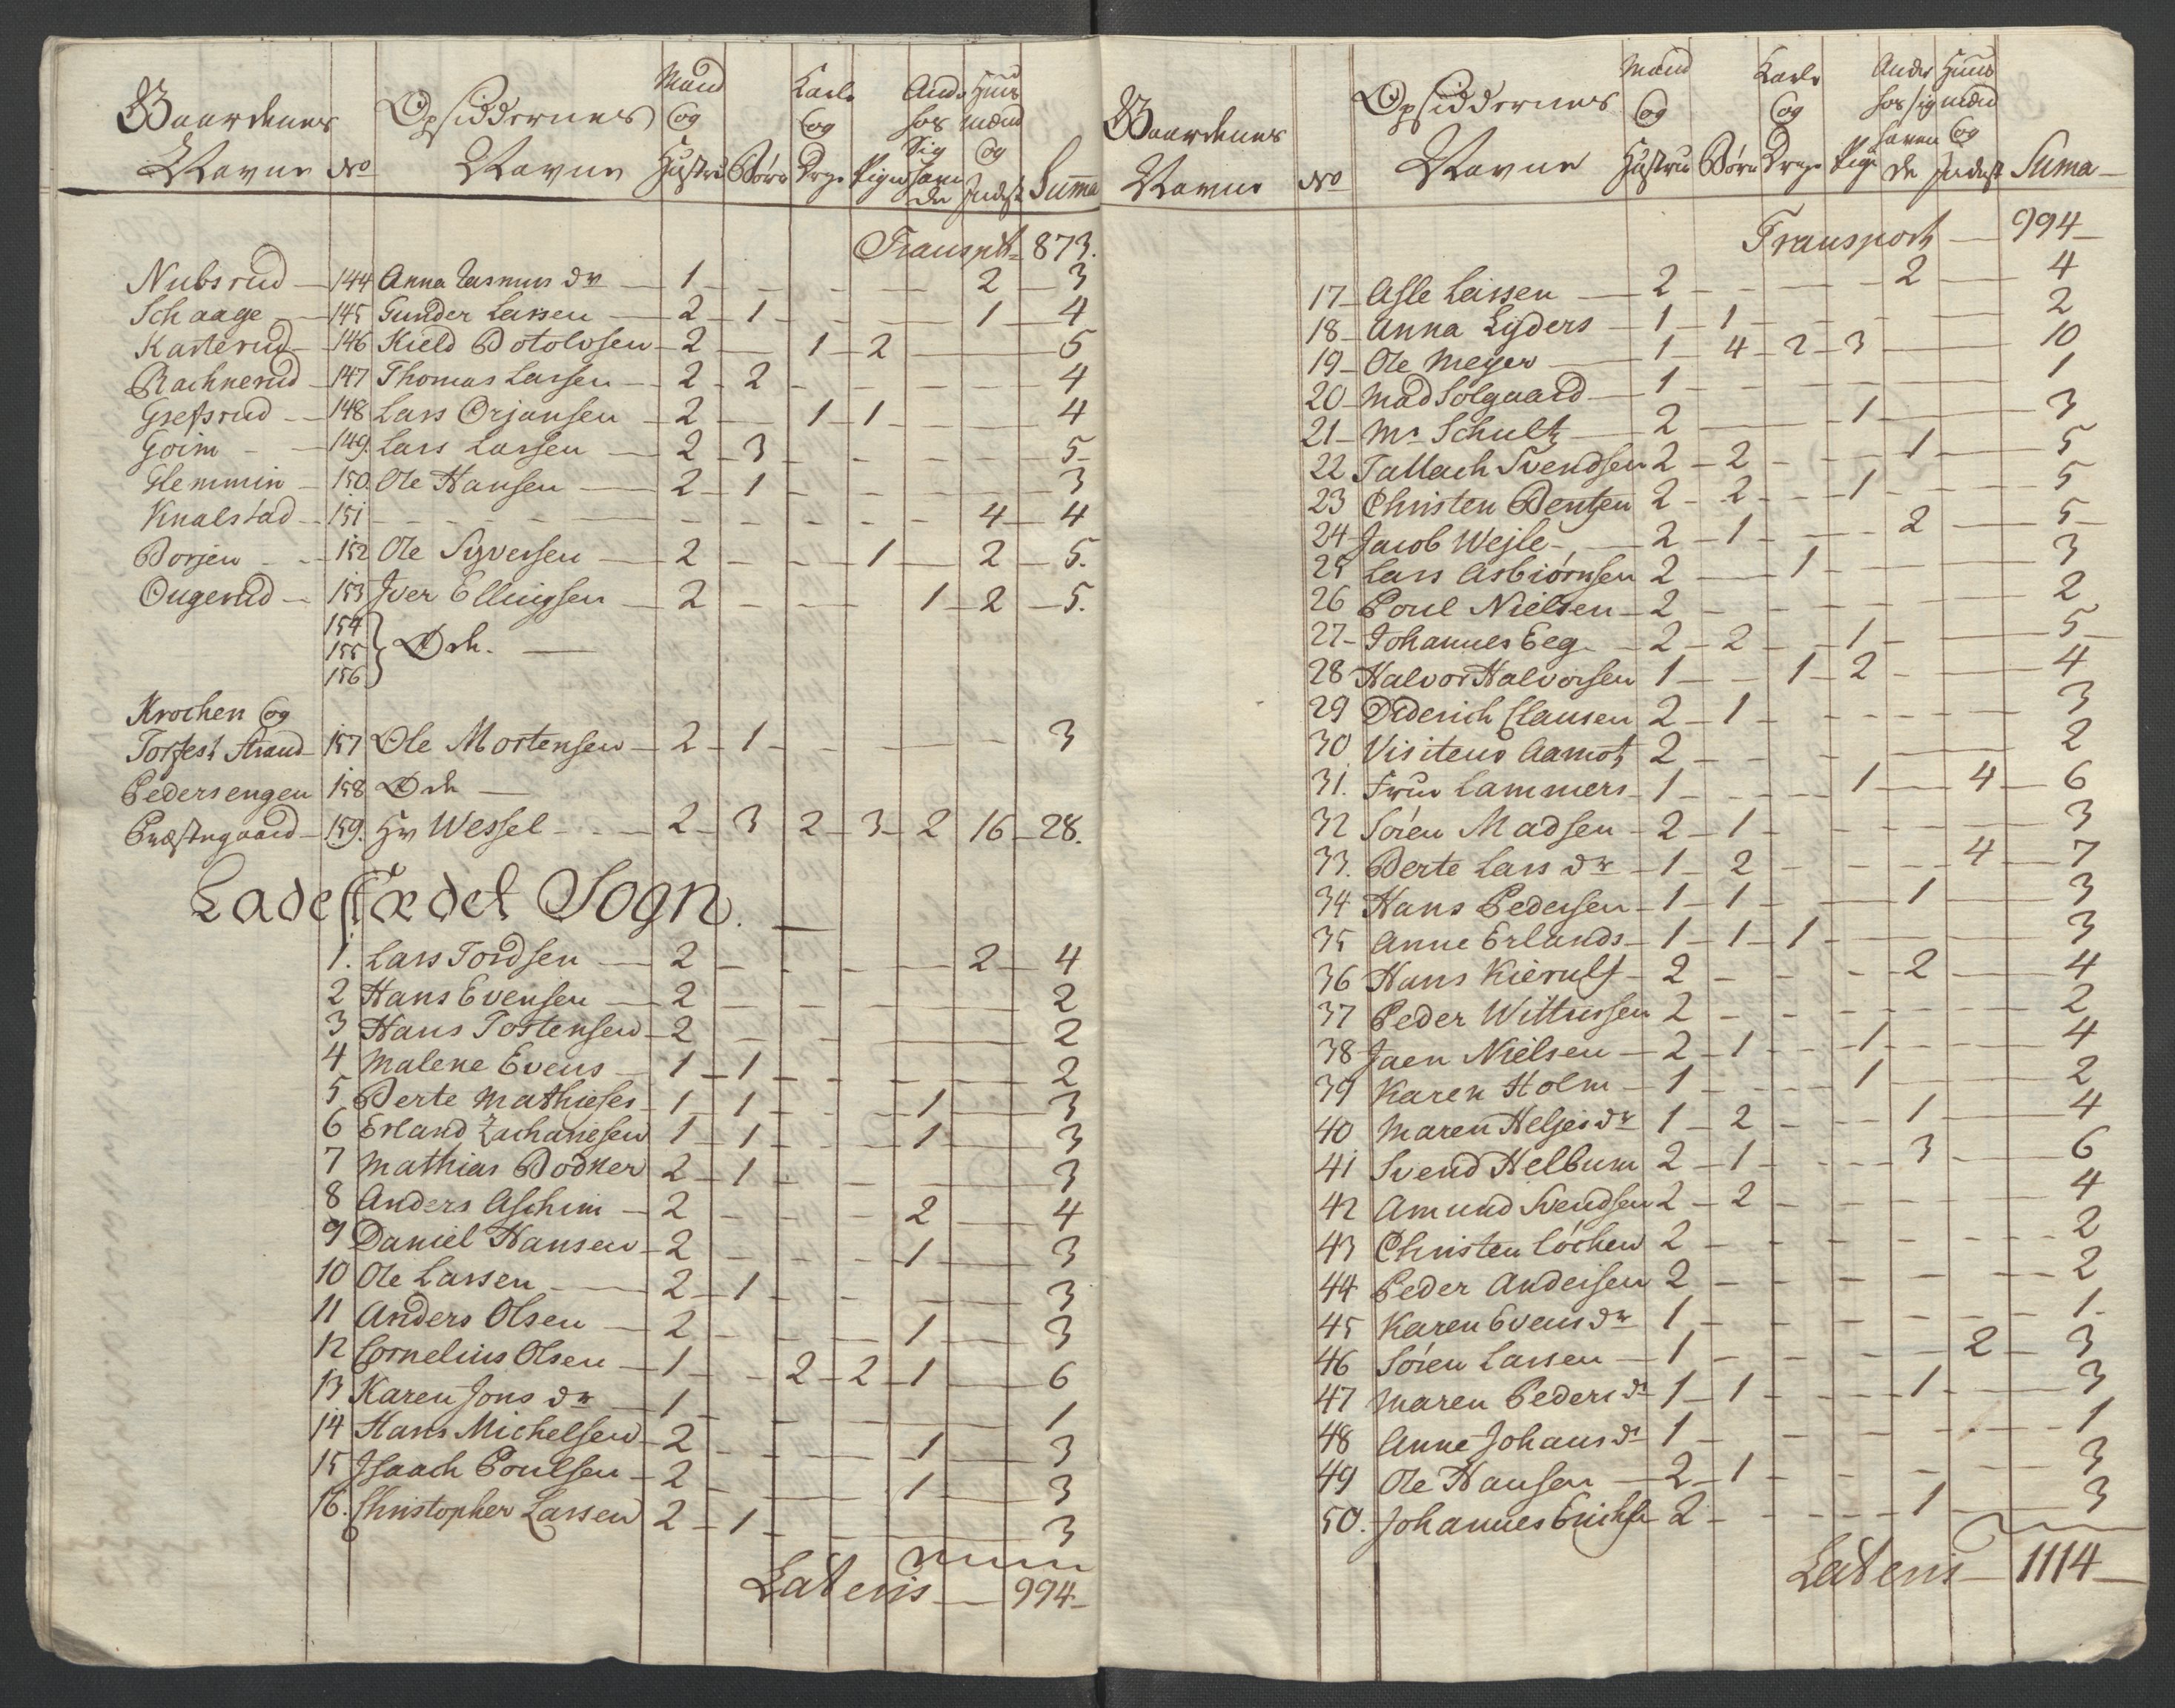 Gaardenes Navne No Opsiddernes Navne Mand og Hustru Børn Karle og Drge Piger Ande hos Sig Have de Huus mænd og Inderst Summa
Transpt 873.
Nubsrud 144 Anna Rasmus dr 1 - - - - 2 3
Schaage 145 Gunder Larsen 2 1 - - - 1 4
Kasterud 146 Kield Botolvsen 2 - 1 2 - - 5
Rachnerud 147 Thomas Larsen 2 2 - - - - 4
Grefsrud 148 Lars Orjansen 2 - 1 1 - - 4
Goim 149. Lars Larsen 2 3 - - - - 5
Glemmin 150. Ole Hansen 2 1 - - - - 3
Knalstad 151 - - - - - - 4 4
Borjen 152 Ole Syversen 2 - - 1 - 2 5.
Ougerud 153 Iver Ellingsen 2 - - - 1 2 5.
154
155 } Öde.
156
Krochen og
Torfest Strand 157 Ole Mortensen 2 1 - - - - 3
Pedersengen 158 Öde
Præstegaard 159. Hr Wessel 2 3 2 3 2 16 28.
Ladestædet Sogn.
1. Lars Tordsen 2 - - - - 2 4
2 Hans Evensen 2 - - - - - 2
3 Hans Tostensen 2 - - - - - 2
4 Malene Evens 1 1 - - - - 2
5 Berte Mathieses 1 1 - - 1 - 3
6 Erland Zachariesen 1 1 - - 1 - 3
7 Mathias Bodker 2 1 - - - - 3
8 Anders Aschim 2 - - - 2 - 4
9 Daniel Hansen 2 - - - 1 - 3
10 Ole Larsen 2 1 - - - - 3
11 Anders Olsen 2 - - - 1 - 3
12 Cornelius Olsen 1 - 2 2 1 - 6
13 Karen Jons dr 1 - - - - - 1
14 Hans Michelsen 2 - - - 1 - 3
15 Isaach Poulsen 2 - - - 1 - 3
16. Christopher Larsen 2 1 - - - - 3
Lateris 994
Gaardenes Navne No Opsiddernes Navne Mand og Hustrue Børn Karle og Drge Pige Andre hos sig haven de Huus mænd og Inderst Suma
Transport 994
17 Asle Larsen 2 - - - 2 - 4
18 Anna Lyders 1 1 - - - - 2
19 Ole Meyer 1 4 2 3 - - 10
20 Mad Solgaard 1 - - - - - 1
21 Mr Schultz 2 - - 1 - - 3
22 Tallach Svendsen 2 2 - - 1 - 5
23 Christen Bentzen 2 2 - 1 - - 5
24 Jacob Wejle 2 1 - - 2 - 5
25 Lars Asbiørnsen 2 - 1 - - - 3
26 Poul Nielsen 2 - - - - - 2
27 Johannes Eeg 2 2 - 1 - - 5
28 Halvor Halvorsen 1 - 1 2 - - 4
29 Diderich Clausen 2 1 - - - - 3
30 Visiteur Aamot 2 - - - - - 2
31. Frue Lammers 1 - - 1 - 4 6
32 Sören Madsen 2 1 - - - - 3
33. Berte Lars dr 1 2 - - - 4 7
34 Hans Pedersen 1 1 - - 1 - 3
35 Anne Erlands 1 1 1 - - - 3
36 Hans Kierulf 2 - - - 2 - 4
37 Peder Wittussen 2 - - - - - 2
38 Jaen Nielsen 2 1 - 1 - - 4
39 Karen Holm 1 - - 1 - - 2
40 Maren Heljes dr 1 2 - - 1 - 4
41 Svend Helbum 2 1 - - 3 - 6
42 Amund Svendsen 2 2 - - - - 4
43 Christen Cöchen 2 - - - - - 2
44 Peder Andersen 2 - - - - - 2
45 Karen Evens dr 1 - - - - - 1
46 Sören Larsen 1 - - - - 2 3
47 Maren Peders dr 1 1 - - 1 - 3
48 Anne Johans dr 1 - - - - - 1
49 Ole Hansen 2 1 - - - - 3
50. Johannes Erichsen 2 - - - 1 - 3
Lateris 1114